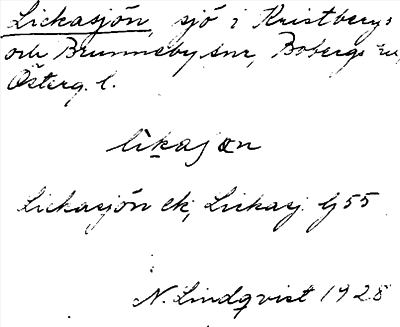 Lickasjön, sjö i Kristbergs
och Brunneby snr, Bobergs hd,
Österg. l.
likasjœn
Lickasjön ek, Lickasj. Gs55
N. Lindqvist 1928